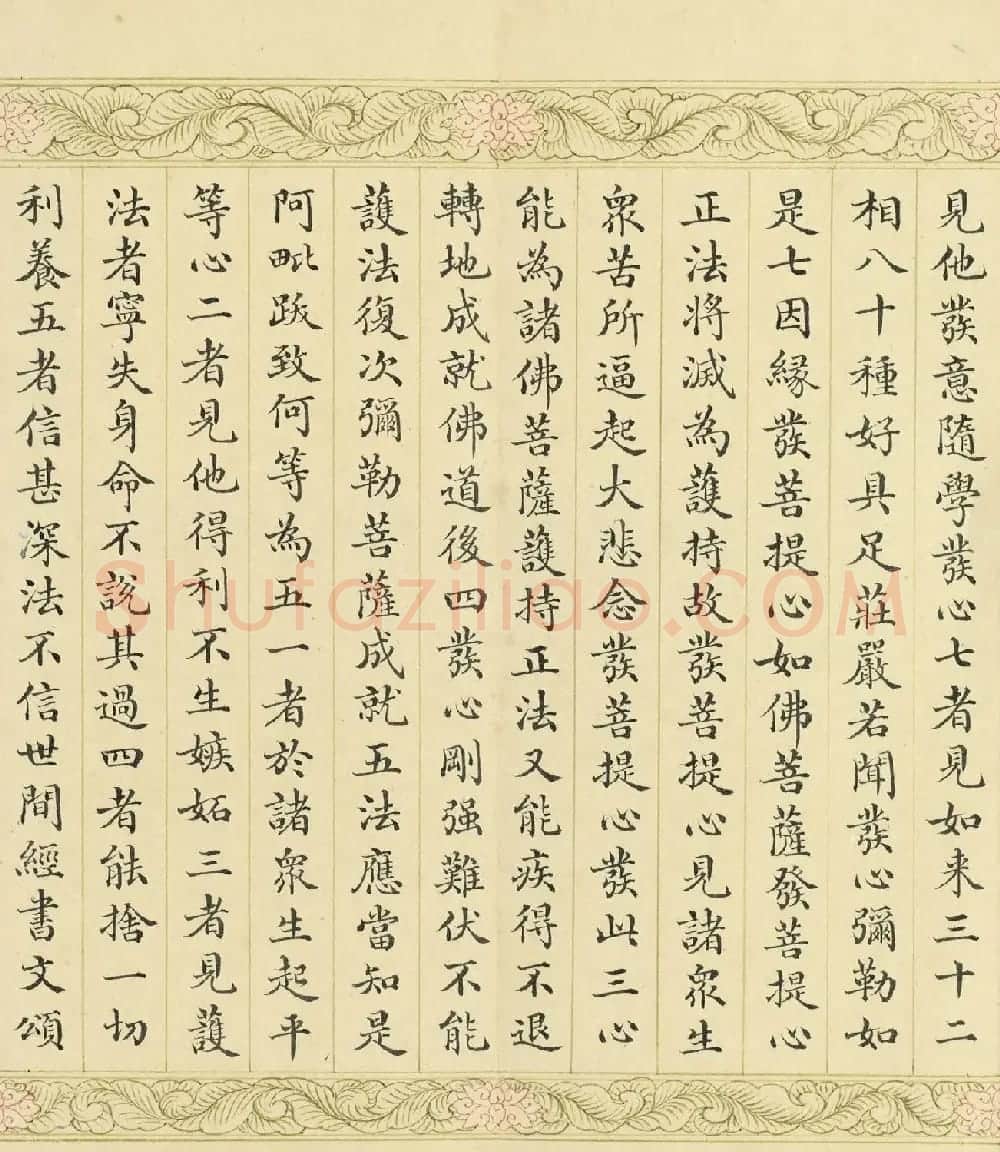 見他發意隨學發心七者見如来三十二
相八十種好具足莊嚴若聞發心彌勒如
是七因緣發菩提心如佛菩薩發菩提心
正法將滅為護持故發菩提心見諸眾生
眾苦所逼起大悲念發菩提心發此三心
能為諸佛菩薩護持正法又能疾得不退
轉地成就佛道後四發心剛强難伏不能
護法復次彌勒菩薩成就五法應當知是
阿毗跋致何等為五一者於諸眾生起平
等心二者見他得利不生嫉妬三者見護
法者寧失身命不說其過四者能捨一切
利養五者信甚深法不信世間經書文頌
Shufaziliao.COM